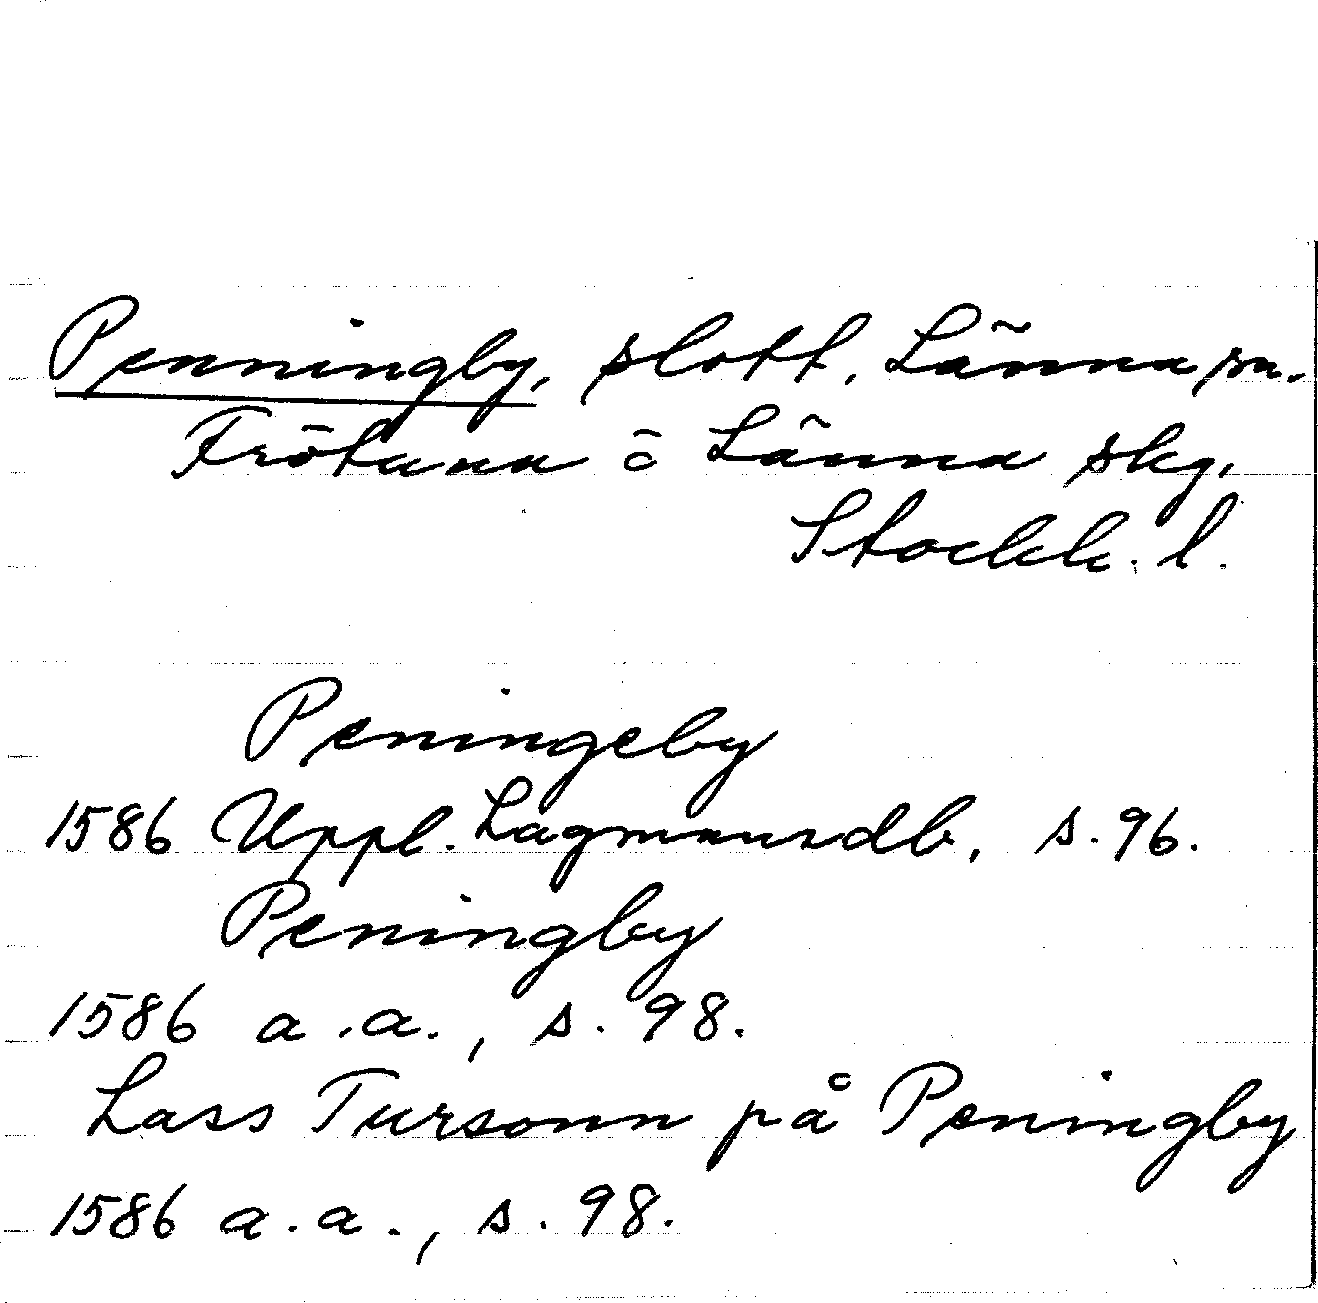 Penningby, slott, Länna sn.
Frötuna o Länna skg.
Stockh. l.
Peningeby
1586 Uppl. Lagmansdb, s. 96.
Peningby
1586 a.a., s. 98.
Lass Tursonn på Peningby
1586 a.a., s. 98.